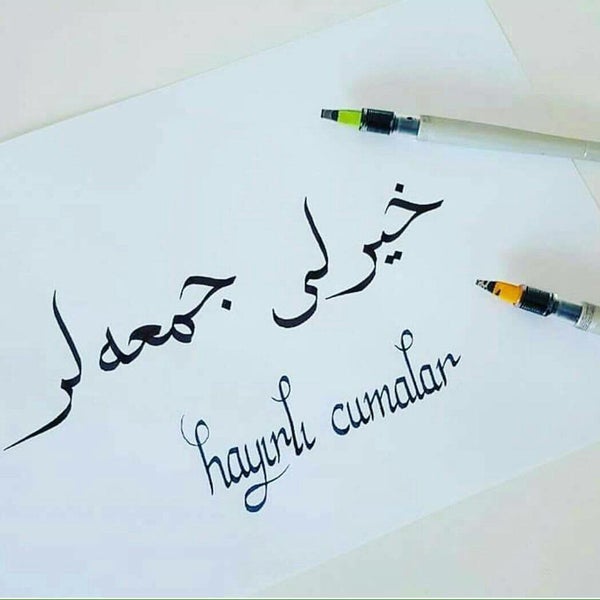 خيرلی جمعه‌لر
hayırlı cumalar